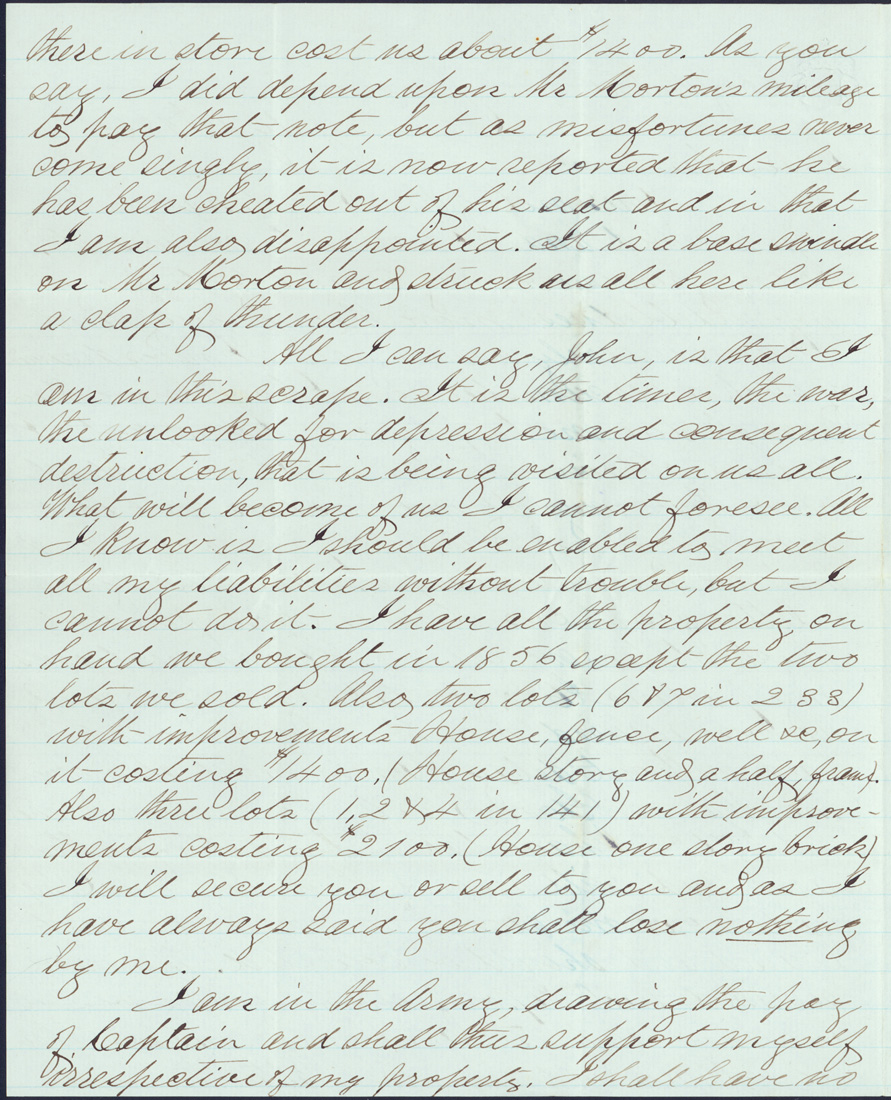 there in store cost us about $1400. As you
say, I did depend upon Mr Morton's mileage
to pay that note, but as misfortunes never
come singly, it is now reported that he
has been cheated out of his seat and in that
I am also disappointed. It is a base swindle
on Mr Morton and struck us all here like
a clap of thunder.
All I can say, John, is that I
am in this scrape. It is the times, the war,
the unlooked for depression and consequent
destruction, that is being visited on us all.
What will become of us I cannot foresee. All
I know is I should be enabled to meet
all my liabilities without trouble, but I
cannot do it. I have all the property on
hand we bought in 1856 except the two
lots we sold. Also two lots (6 & 7 in 233)
with improvements House, fence, well &c, on
it costing $1400. (House story and a half frame).
Also three lots (1, 2 & 4 in 141) with improve-
ments costing $2100. (House one story brick)
I will secure you or sell to you and as I
have always said you shall lose nothing
by me.
I am in the Army, drawing the pay
of Captain and shall thus support myself
irrespective of my property. I shall have no